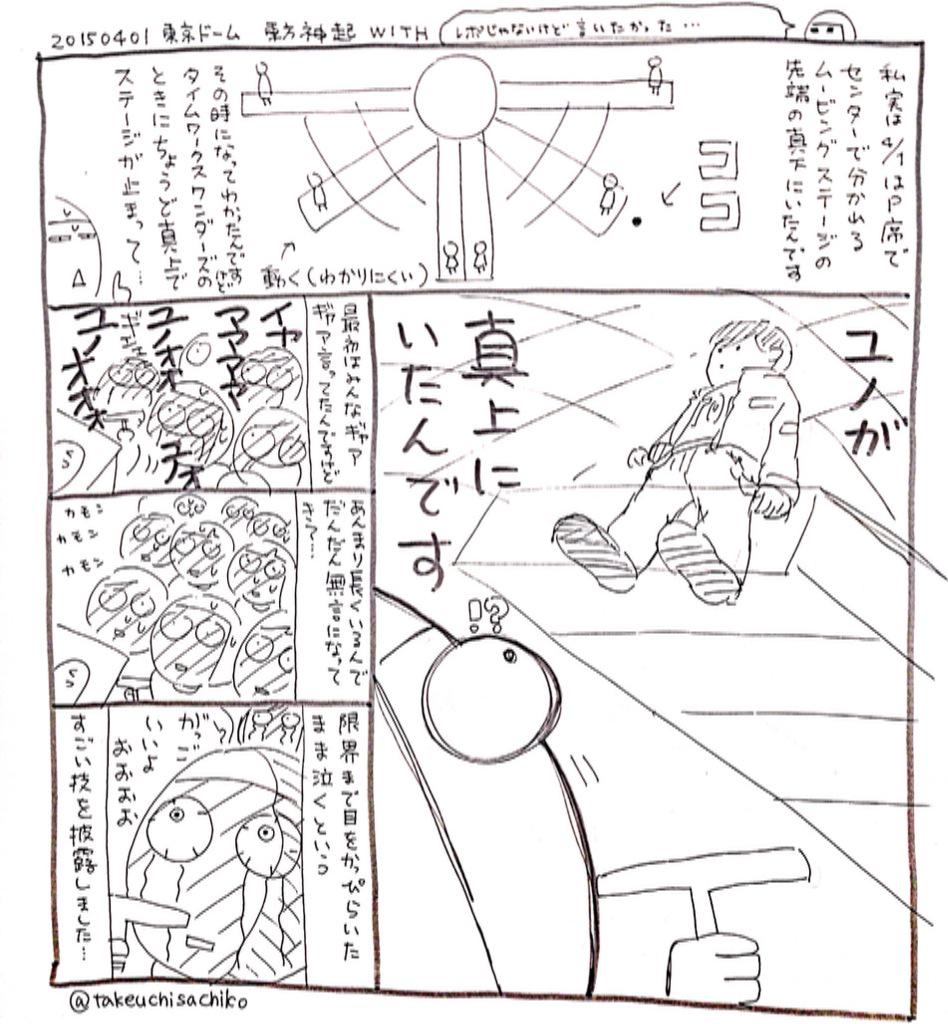 20150401 東京ドーム 東方神起 WITH
レポじゃないけど言いたかった…
私実は4/1はP席で
センターで分かれる
ムービングステージの
先端の真下にいたんです
動く(わかりにくい)
その時になってわかったんですけど
タイムワークスワンダーズの
ときにちょうど真上で
ステージが止まって…
ユノが
真上に
いたんです
!?
最初はみんなギャア
ギャア言ってたんですけど
イヤ
アアアア
ユノオオ
ユノオオオ
S
あんまり長くいるんで
だんだん無言になって
カモン
カモン
カモン
S
限界まで目をかっぴらいた
まま泣くという
がっご
いいよ
おおおお
すごい技を披露しました…
@takeuchisachiko